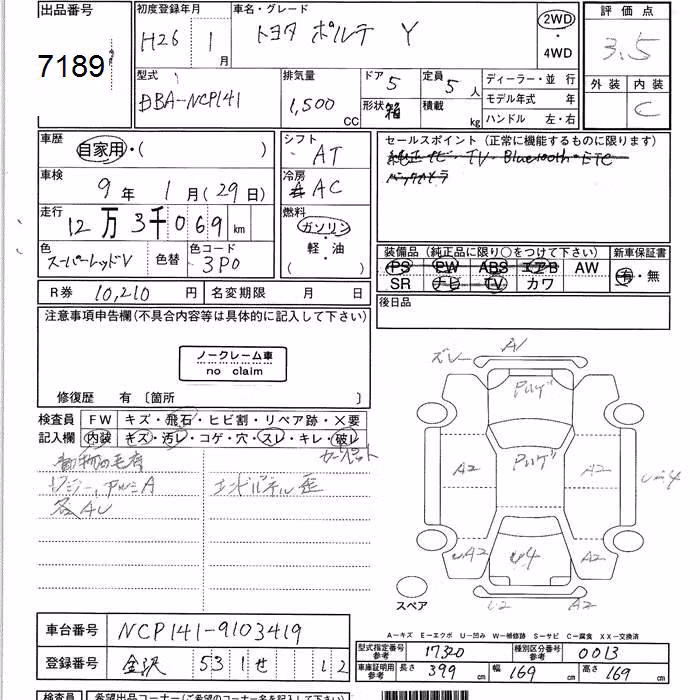 出品番号 7189
初度登録年月 H26 1月
車名・グレード トヨタ ポルテ Y
2WD・4WD
評価点 3.5
外装 内装 C
型式 DBA-NCP141
排気量 1,500 CC
ドア 5
形状 箱
定員 5人
積載 kg
ディーラー・並行
モデル年式 年
ハンドル 左・右
車歴 自家用・( )
シフト AT
セールスポイント (正常に機能するものに限ります)
純正ナビ・TV・Bluetooth・ETC
バックカメラ
車検 9年 1月(29日)
冷房 AC
走行 12万3千069km
燃料 ガソリン・軽・油 ( )
色 スーパーレッドV 色替
色コード 3P0
装備品 (純正品に限り○をつけて下さい) 新車保証書
PS PW ABS エアB AW 有・無
SR ナビ TV カワ
R券 10,210円 名変期限 月 日
後日品
注意事項申告欄(不具合内容等は具体的に記入して下さい)
ノークレーム車
no claim
修復歴 有 〔箇所 〕
検査員 FW キズ・飛石・ヒビ割・リペア跡・×要
記入欄 内装 キズ・汚レ・コゲ・穴・スレ・キレ・破レ
カーペット
動物の毛有
アルミA エンドパネル歪
各AU
ズレー A1
A2 A2
UA2 U4 A2
A2
スペア
A-キズ E-エクボ U-凹み W-補修跡 S-サビ C-腐食 XX-交換済
車台番号 NCP141-9103419
登録番号 金沢 531 せ 12
型式指定番号 参考 17320 種別区分番号 参考 0013
車庫証明用 参考 長さ 399cm 幅 169cm 高さ 169cm
検査員 希望出品コーナー(ご希望のコーナー名を記入下さい)